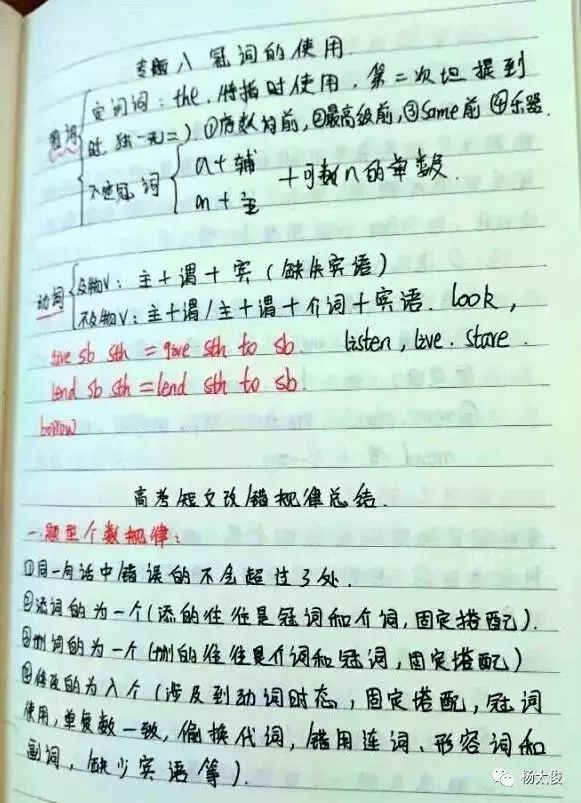 专题八 冠词的使用.
冠词 定词词：the. 特指时使用. 第二次坦提到
时. 独一无二) ①序数词前, ②最高级前, ③Same前 ④乐器.
不定冠词 a + 辅
an + 主 + 可数n的单数.
动词 及物V：主 + 谓 + 宾 (缺失宾语)
不及物V：主+谓/主+谓+介词+宾语. look,
give sb sth = gave sth to sb. listen, live. stare.
lend sb sth = lend sth to sb.
borrow
高考短文改错规律总结.
一.题型个数规律：
①同一句话中错误的不会超过3处.
②添词的为一个(添的往往是冠词和介词, 固定搭配).
③删词的为一个 (删的往往是介词和冠词, 固定搭配)
④修改的为八个 (涉及到动词时态, 固定搭配, 冠词
使用, 单复数一致, 偷换代词, 错用连词、形容词和
副词, 缺少宾语等).
杨太俊